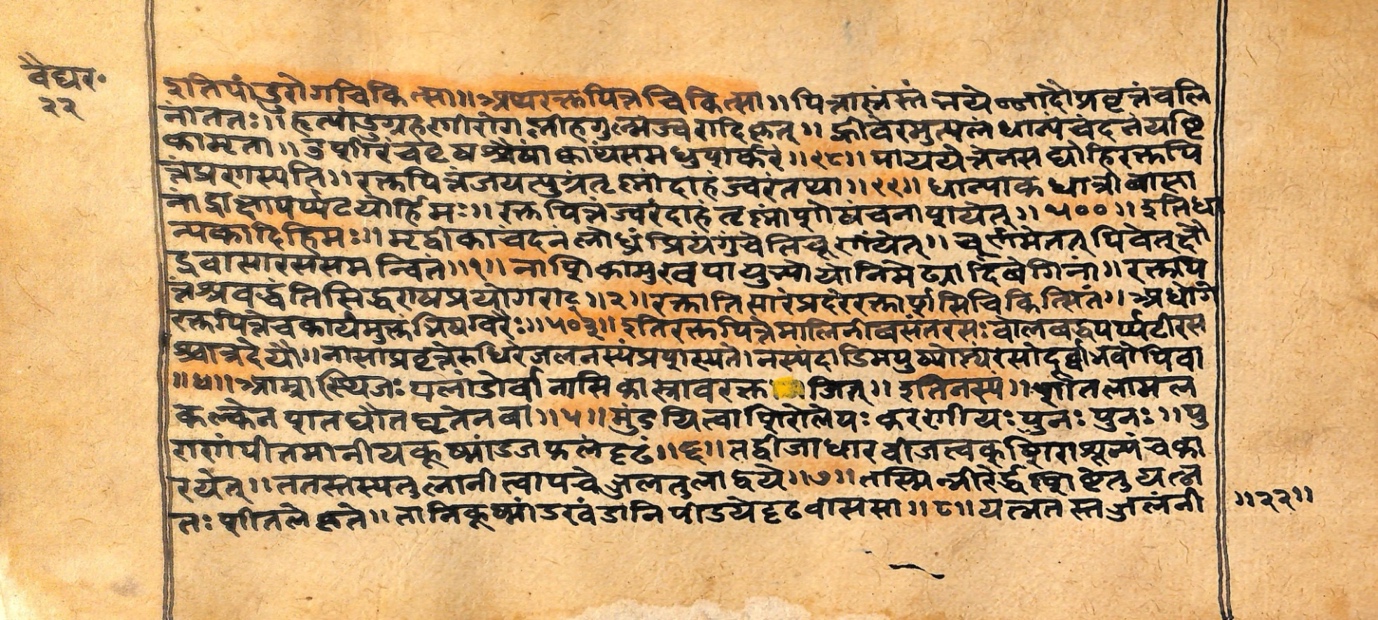 वैद्यर॰
२२
इतिपांडुरोगचिकित्सा॥अथरक्तपित्तचिकित्सा॥पित्तास्रंस्तंनयेन्नादौप्रवृत्तंबलि
नांततः॥हृत्पांडुग्रहणीरोगप्लीहगुल्मज्वरादिकृत्॥ह्रीवेरमुत्पलंधान्यंचंदनंयष्टि
कामृता॥उशीरंचवृषश्चैषांक्वाथंसमधुशर्करं॥९८॥पाययेत्तेनसद्योहिरक्तपि
त्तंप्रणस्यति॥रक्तपित्तंजयत्युग्रंतृष्णांदाहंज्वरंतथा॥९९॥धान्याकधात्रीवासा
नांद्राक्षापर्प्पटयोर्हिमः॥रक्तपित्तंज्वरंदाहंतृष्णांशोषंचनाशयेत्॥५००॥इतिधा
न्यकादिहिमः॥मृद्वीकाचंदनंलोध्रंप्रियंगुंचेतिचूर्णयेत्॥चूर्णमेतत्पिबेत्क्षौ
द्रवासारससमन्वितं॥१॥नाशिकामुखपायुभ्योयोनिमेढ्रादिवेगिनां॥रक्तपि
त्तंश्रवद्धंतिसिद्धएषप्रयोगराट्॥२॥रक्तातिसारंप्रदरंरक्तार्शसिचिकित्सितं॥अधोगे
रक्तपित्तेचकार्यमुक्तंभिषग्वरैः॥५०३॥इतिरक्तपित्तेमालिनीवसंतरसःबोलबद्धपर्प्पटीरस
श्चात्रदेयौ॥नासाप्रवृत्तेरुधिरेजलनस्यंप्रशस्यते।नस्यंदाडिमपुष्पोत्थरसोदूर्वाभवोपिवा
॥४॥आम्रास्थिजःपलांडोर्वानासिकास्रावरक्तजित्॥इतिनस्य॥शीतलामल
कल्केनशतधौतघृतेनवा॥५॥मुंडयित्वाशिरोलेपःकरणीयःपुनःपुनः॥पु
राणंपीतमानीयकूष्मांडजफलंदृढं॥६॥तद्वीजाधारवीजत्वक्शिराशून्यंचका
रयेत्॥ततस्तस्यतुलांनीत्वापचेज्जलतुलाद्वये॥७॥तस्मिन्नीरेर्द्धशिष्टेतुयत्न
तःशीतलेकृते॥तानिकूष्मांडखंडानिपीडयेदृढवाससा॥८॥यत्नतस्तज्जलंनी
॥२२॥